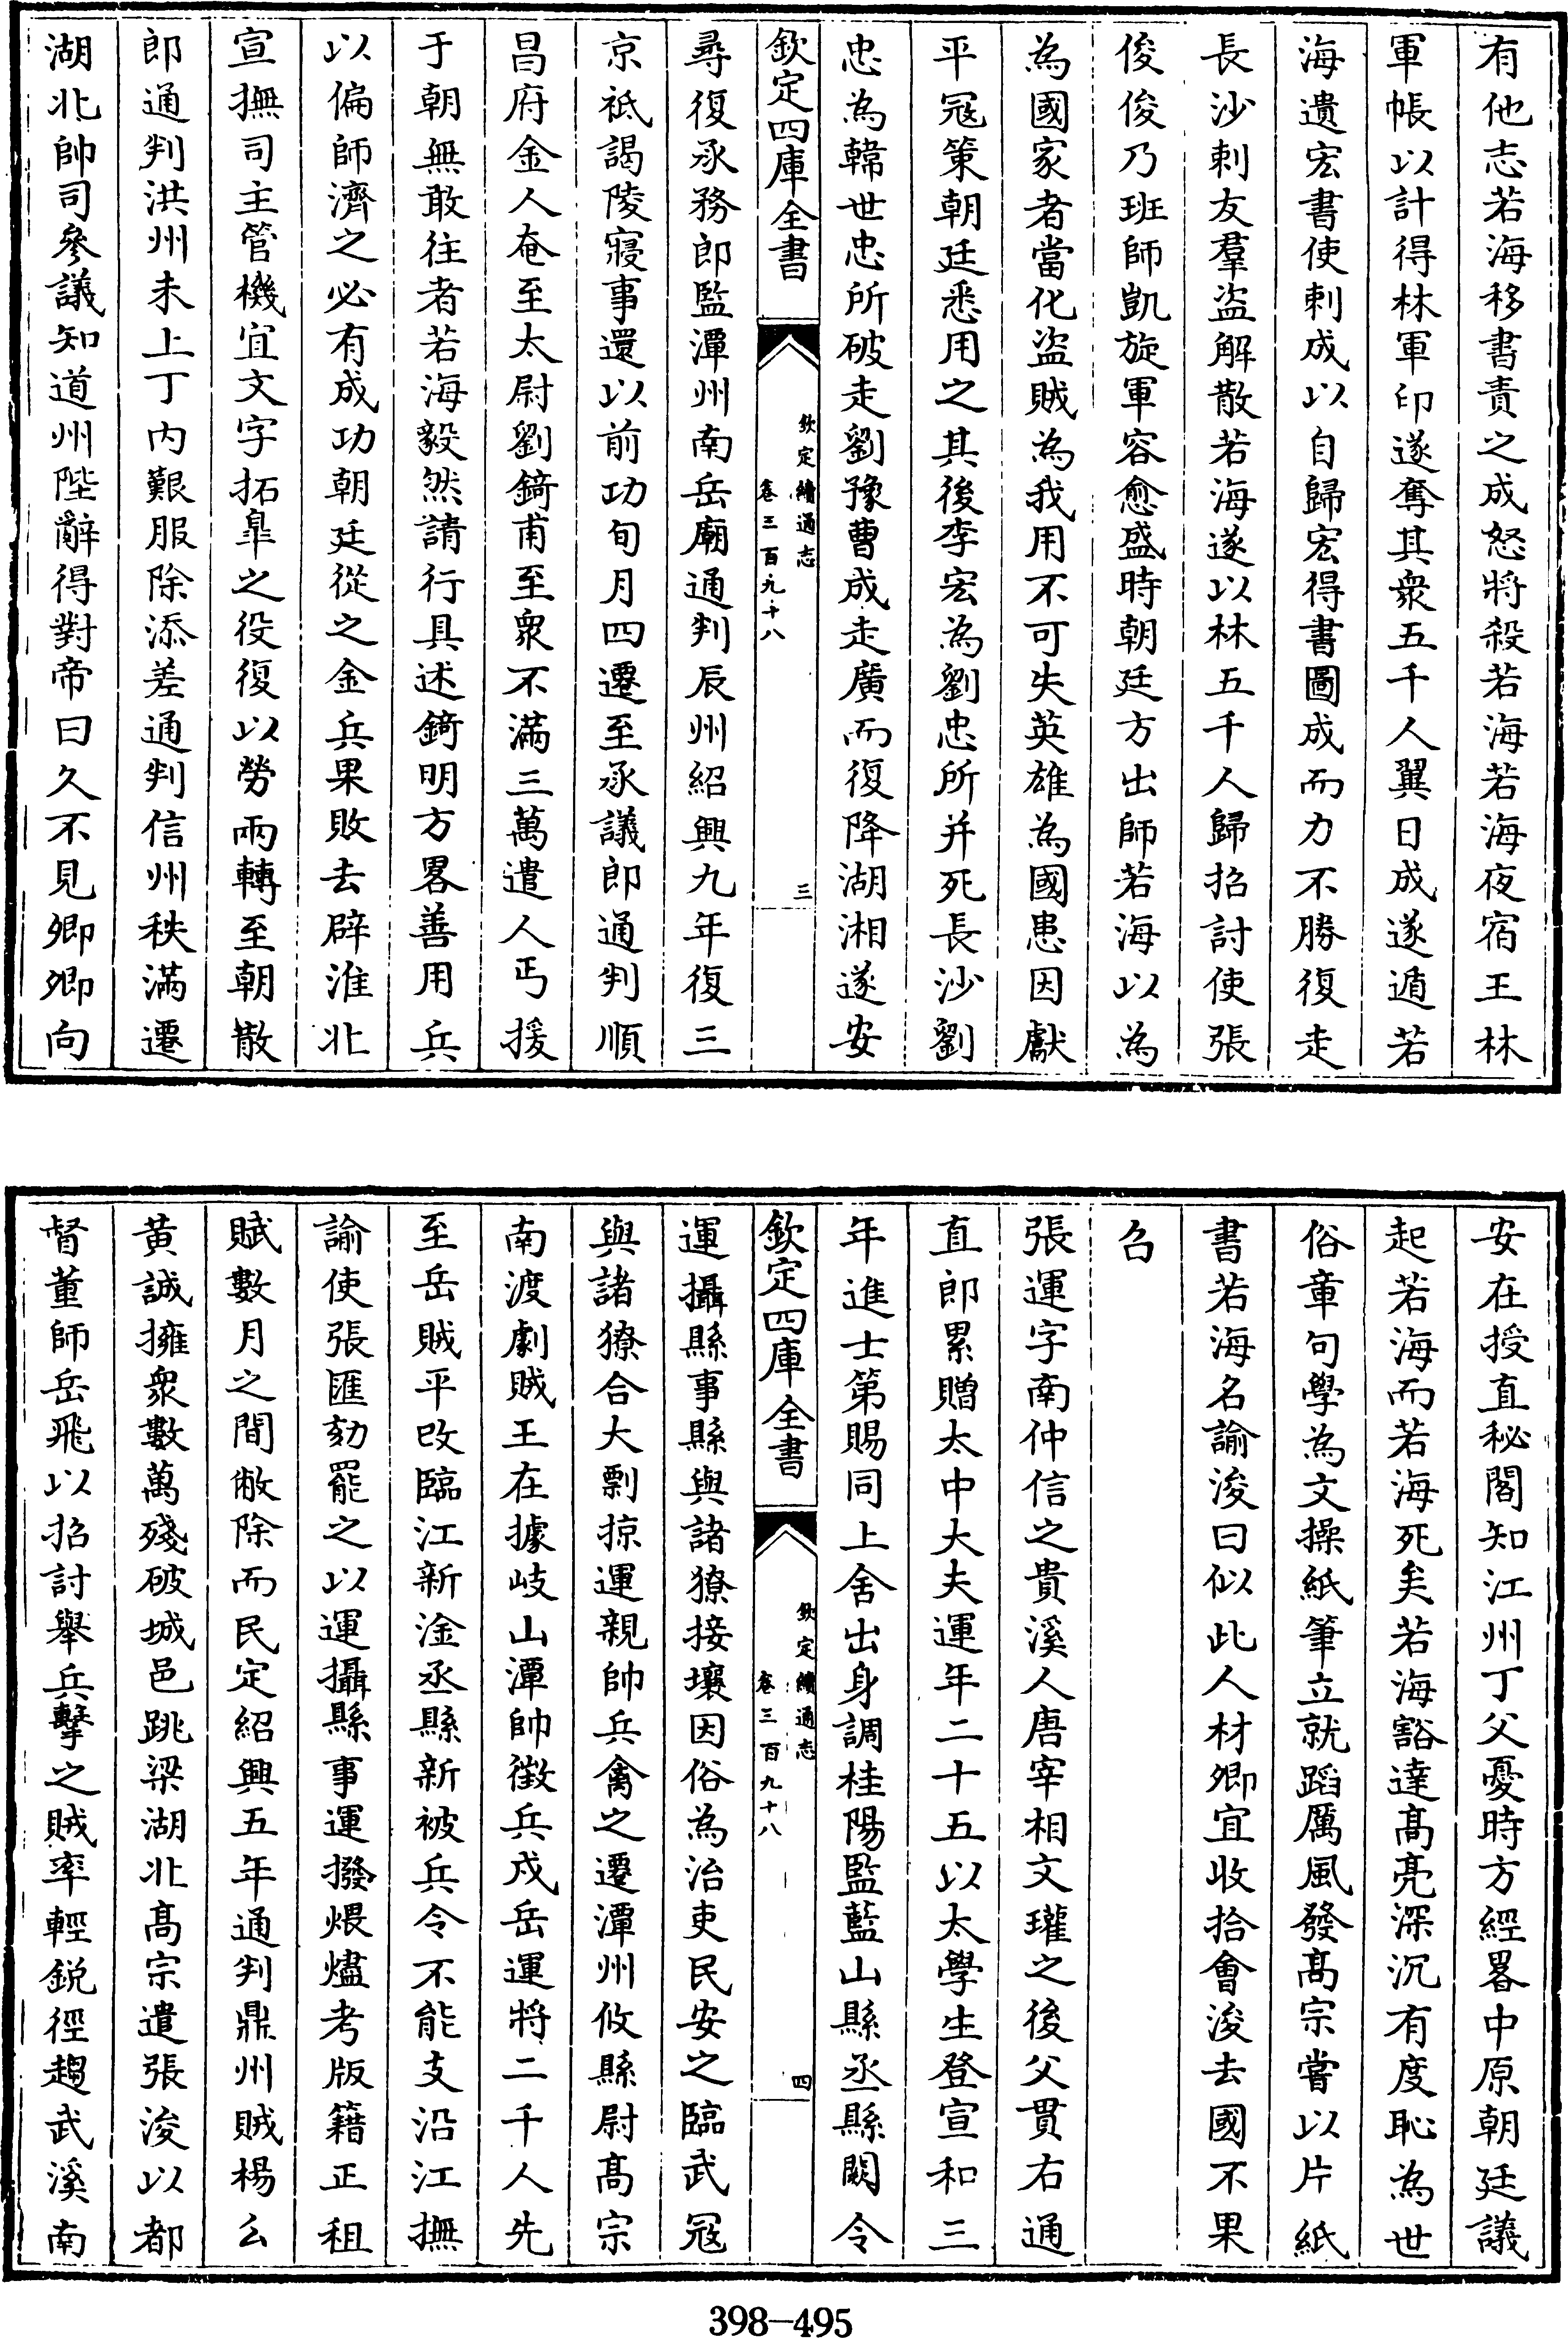 有他志若海移書責之成怒將殺若海若海夜宿王林
軍帳以計得林軍印遂奪其衆五千人翼日成遂遁若
海遺宏書使刺成以自歸宏得書圖成而力不勝復走
長沙刺友羣盜解散若海遂以林五千人歸招討使張
俊俊乃班師凱旋軍容愈盛時朝廷方出師若海以為
為國家者當化盜賊為我用不可失英雄為國患因獻
平冦策朝廷悉用之其後李宏為劉忠所并死長沙劉
忠為韓世忠所破走劉豫曹成走廣而復降湖湘遂安
欽定四庫全書
欽定續通志
卷三百九十八
三
尋復承務郎監潭州南岳廟通判辰州紹興九年復三
京祗謁陵寢事還以前功旬月四遷至承議郎通判順
昌府金人奄至太尉劉錡甫至衆不滿三萬遣人丐援
于朝無敢往者若海毅然請行具述錡明方畧善用兵
以偏師濟之必有成功朝廷從之金兵果敗去辟淮北
宣撫司主管機宜文字拓皐之役復以勞兩轉至朝散
郎通判洪州未上丁內艱服除添差通判信州秩滿遷
湖北帥司參議知道州陛辭得對帝曰久不見卿卿向
安在授直秘閣知江州丁父憂時方經畧中原朝廷議
起若海而若海死矣若海豁達髙亮深沉有度恥為世
俗章句學為文操紙筆立就蹈厲風發髙宗嘗以片紙
書若海名諭浚曰似此人材卿宜收拾會浚去國不果
召
張運字南仲信之貴溪人唐宰相文瓘之後父貫右通
直郎累贈太中大夫運年二十五以太學生登宣和三
年進士第賜同上舍出身調桂陽監藍山縣丞縣闕令
欽定四庫全書
欽定續通志
卷三百九十八
四
運攝縣事縣與諸獠接壤因俗為治吏民安之臨武冦
與諸獠合大剽掠運親帥兵禽之遷潭州攸縣尉髙宗
南渡劇賊王在據岐山潭帥徵兵戍岳運將二千人先
至岳賊平改臨江新淦丞縣新被兵令不能支沿江撫
諭使張匯劾罷之以運攝縣事運撥煨燼考版籍正租
賦數月之間敝除而民定紹興五年通判鼎州賊楊么
黃誠擁衆數萬殘破城邑跳梁湖北髙宗遣張浚以都
督董師岳飛以招討舉兵擊之賊率輕鋭徑趨武溪南
398-495